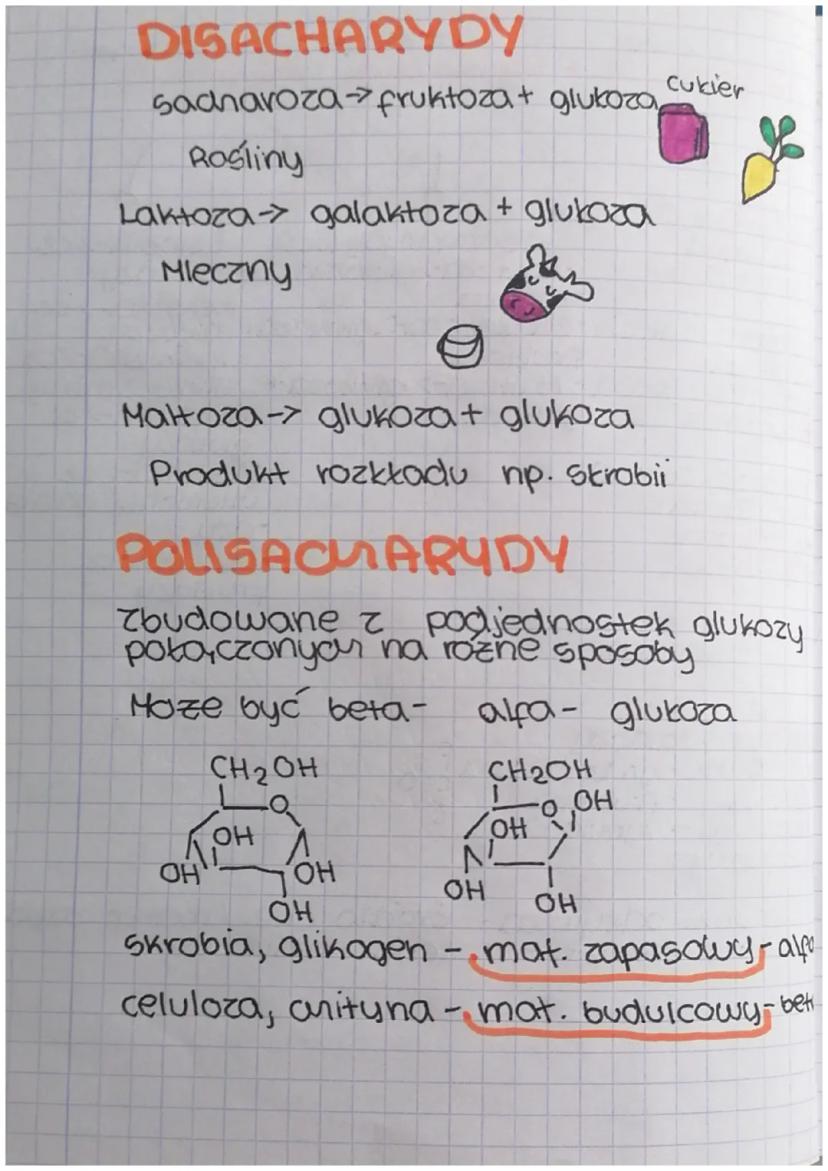 DISACHARYDY
sacharoza → fruktoza + glukoza cukier
Rośliny
Laktoza → galaktoza + glukoza
Mleczny
Maltoza → glukoza + glukoza
Produkt rozkładu np. skrobii
POLISACHARYDY
Zbudowane z podjednostek glukozy
połączonych na różne sposoby
Może być beta- alfa- glukoza
CH2OH CH2OH
O O OH
OH OH
OH OH OH
OH OH
skrobia, glikogen - mat. zapasowy - alfa
celuloza, chityna - mat. budulcowy - bet